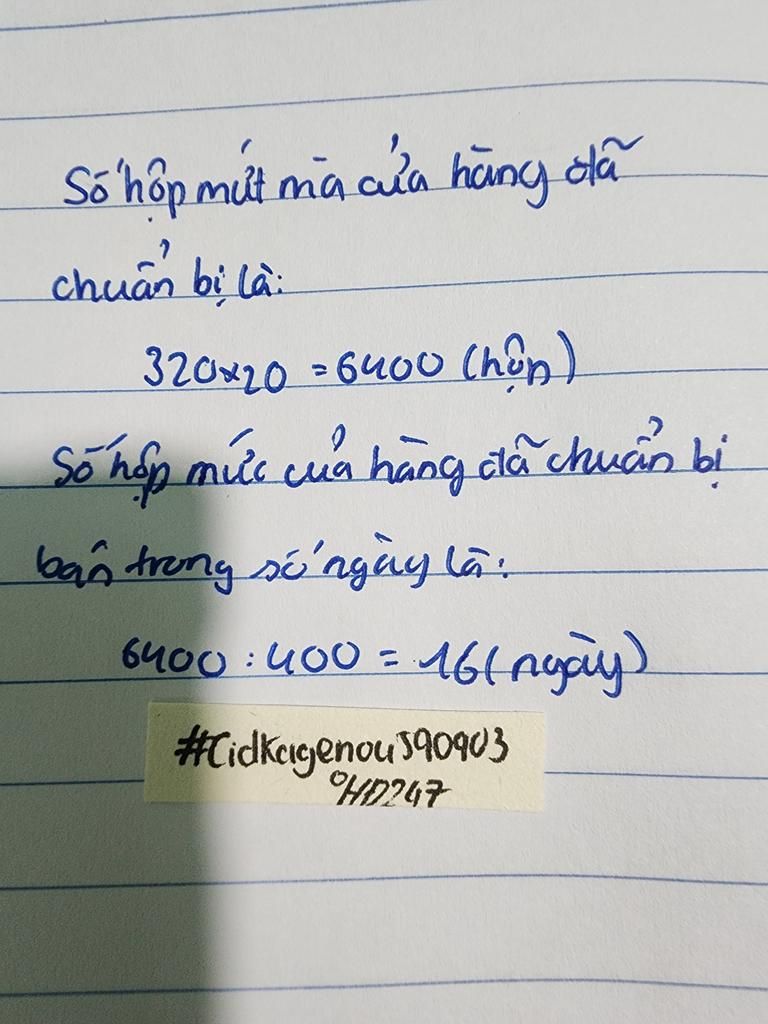 Số hộp mứt mà cửa hàng đã
chuẩn bị là:
320x20 = 6400 (hộp)
Số hộp mức cửa hàng đã chuẩn bị
bán trong số ngày là:
6400 : 400 = 16 (ngày)
#Cidkagenou590903
HD247